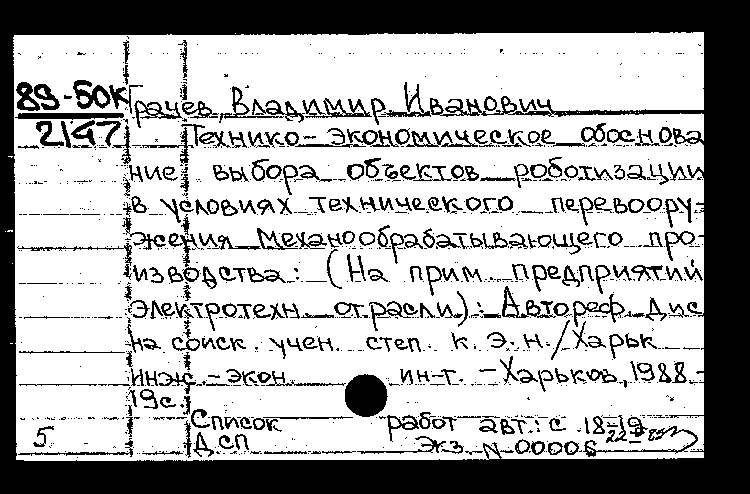 89-50К Грачев, Владимир Иванович
2147 Технико-экономическое обоснова
ние выбора объектов роботизации
в условиях технического перевоору-
жения механообрабатывающего про-
изводства: (На прим. предприятий
электротехн. отрасли): Автореф. дис
на соиск. учен. степ. к. э. н. / Харьк
инж.-экон. ин-т. - Харьков, 1988.-
19с.
Список работ авт.: с. 18-19
5 ДСП Экз. N 00006